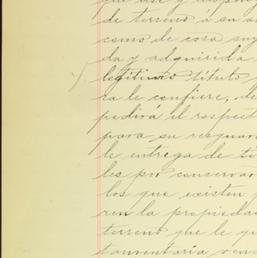 que dar y
de terreno á su
como de cosa suy
da y adquirida
legítimo título
ta le confiere, de
pedirá el respect
para su resguar
le entrega de ti
les por conservar
los que existen
ren la propiedad
terreno que le qu
tamentaria, ven